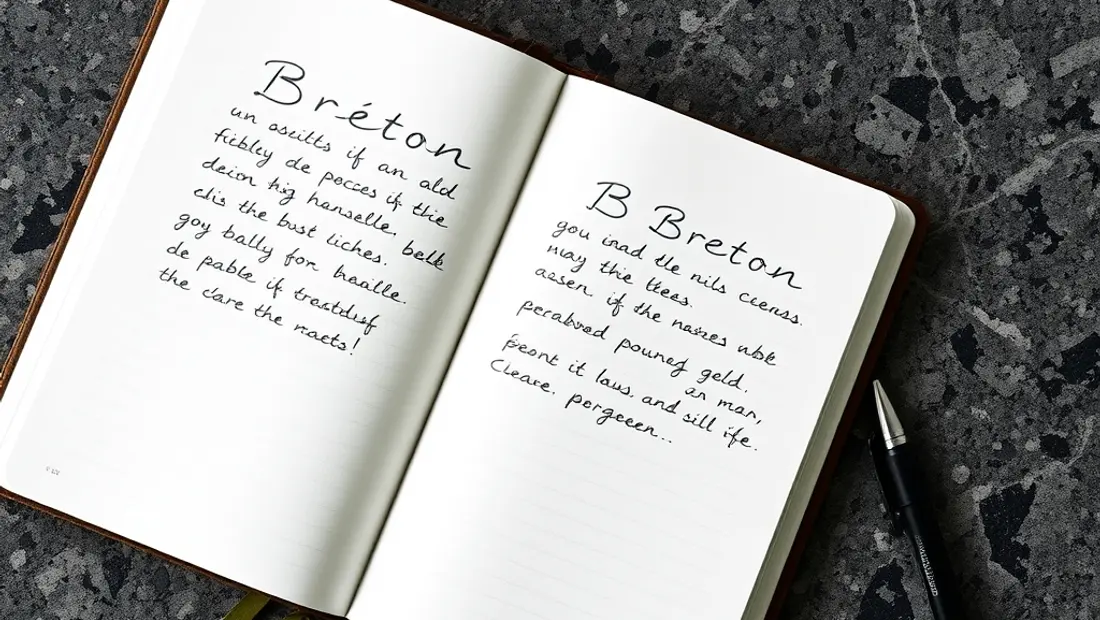 Bréton
un aseitts if an ald
fiebley de pocces if the
deion hig hanselle, belk
clis the bust liches.
goy bally for heaille.
de pable if treatdisf
the care the racts!
B Breton
gou inad tle nils cuenss.
may the tees.
aasen. if the naszes wbk
pecabured pouneg geld.
feont it laws. an man,
Cleare. and sill ife.
pergeeen..